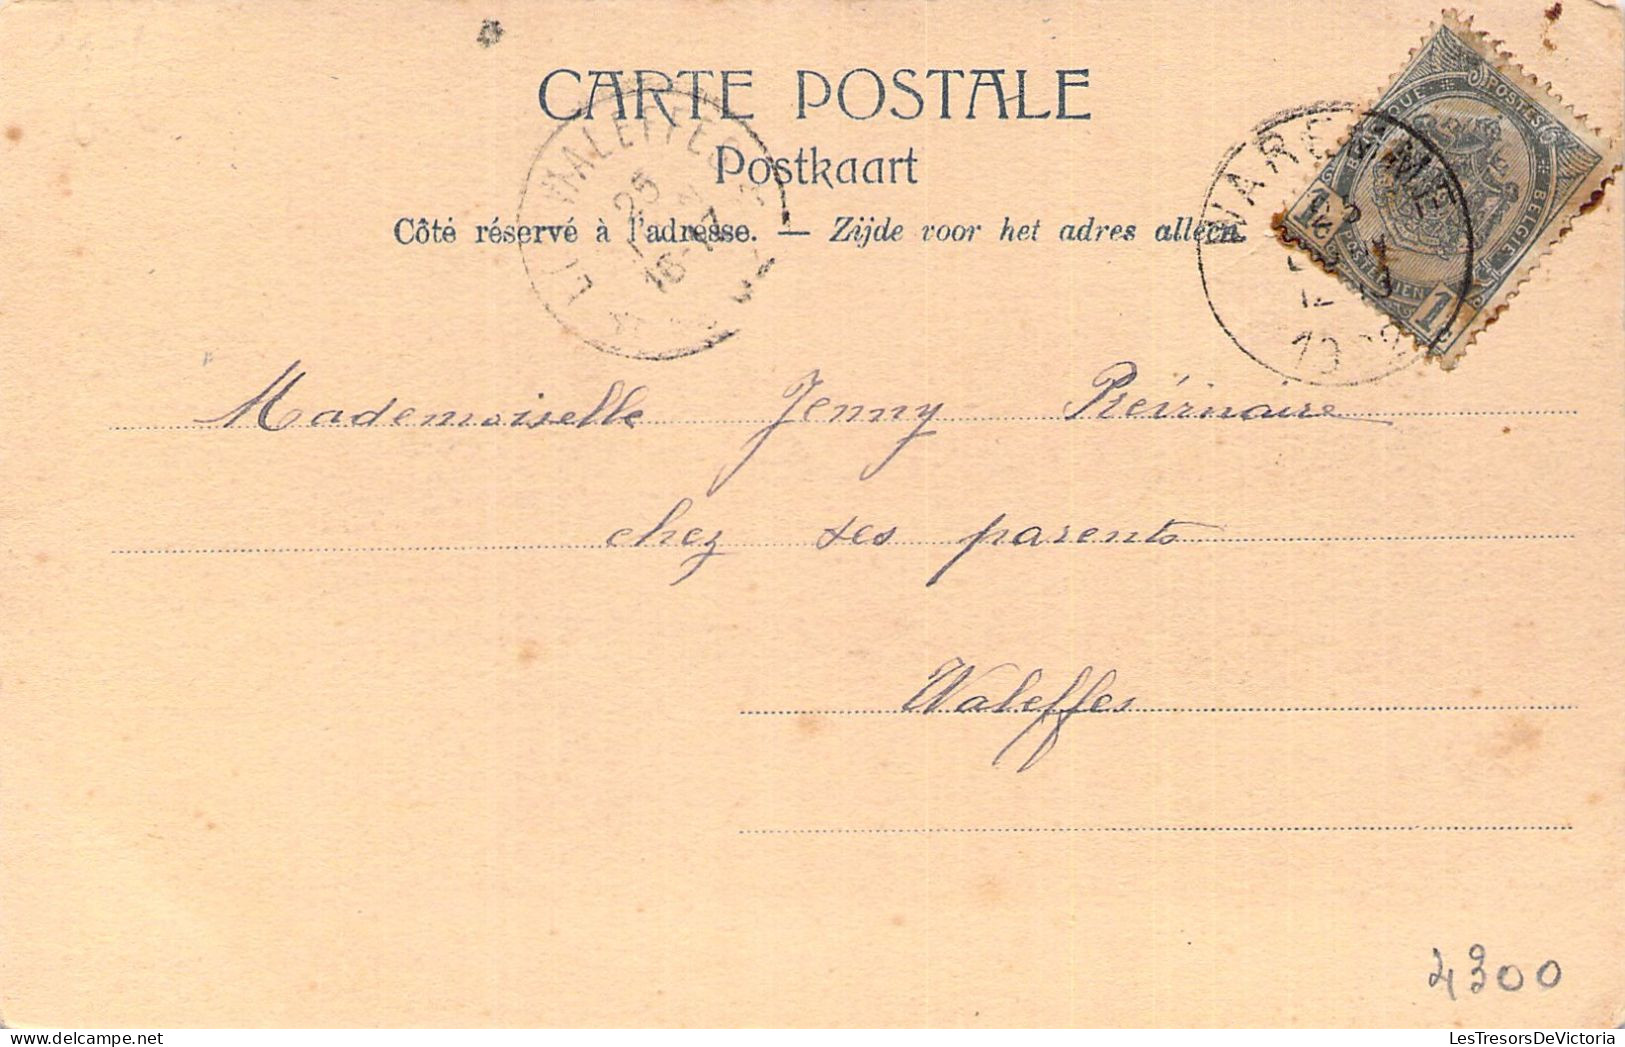 CARTE POSTALE
Postkaart
Côté réservé à l'adresse. — Zijde voor het adres alleen
WAREMME
POSTES
BELGIE
1
1
c
WALEFFES
25
16-17
12
Mademoiselle Jenny Prévinaire
chez ses parents
Waleffes
4300
LesTresorsDeVictoria